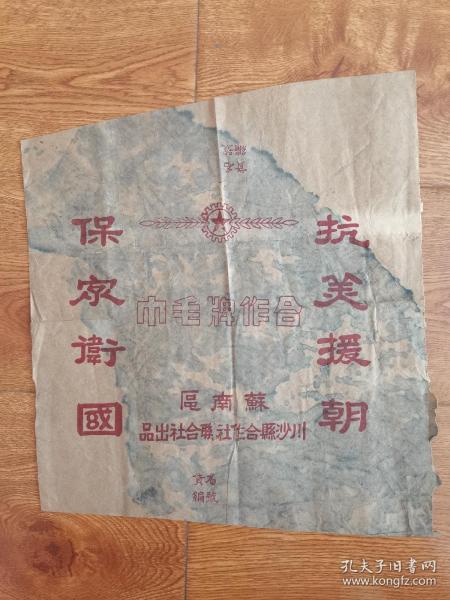 貨名
編號
抗美援朝
保家衛國
合作牌毛巾
蘇南區
川沙縣合作社聯合社出品
貨名
編號
孔夫子旧书网
www.kongfz.com